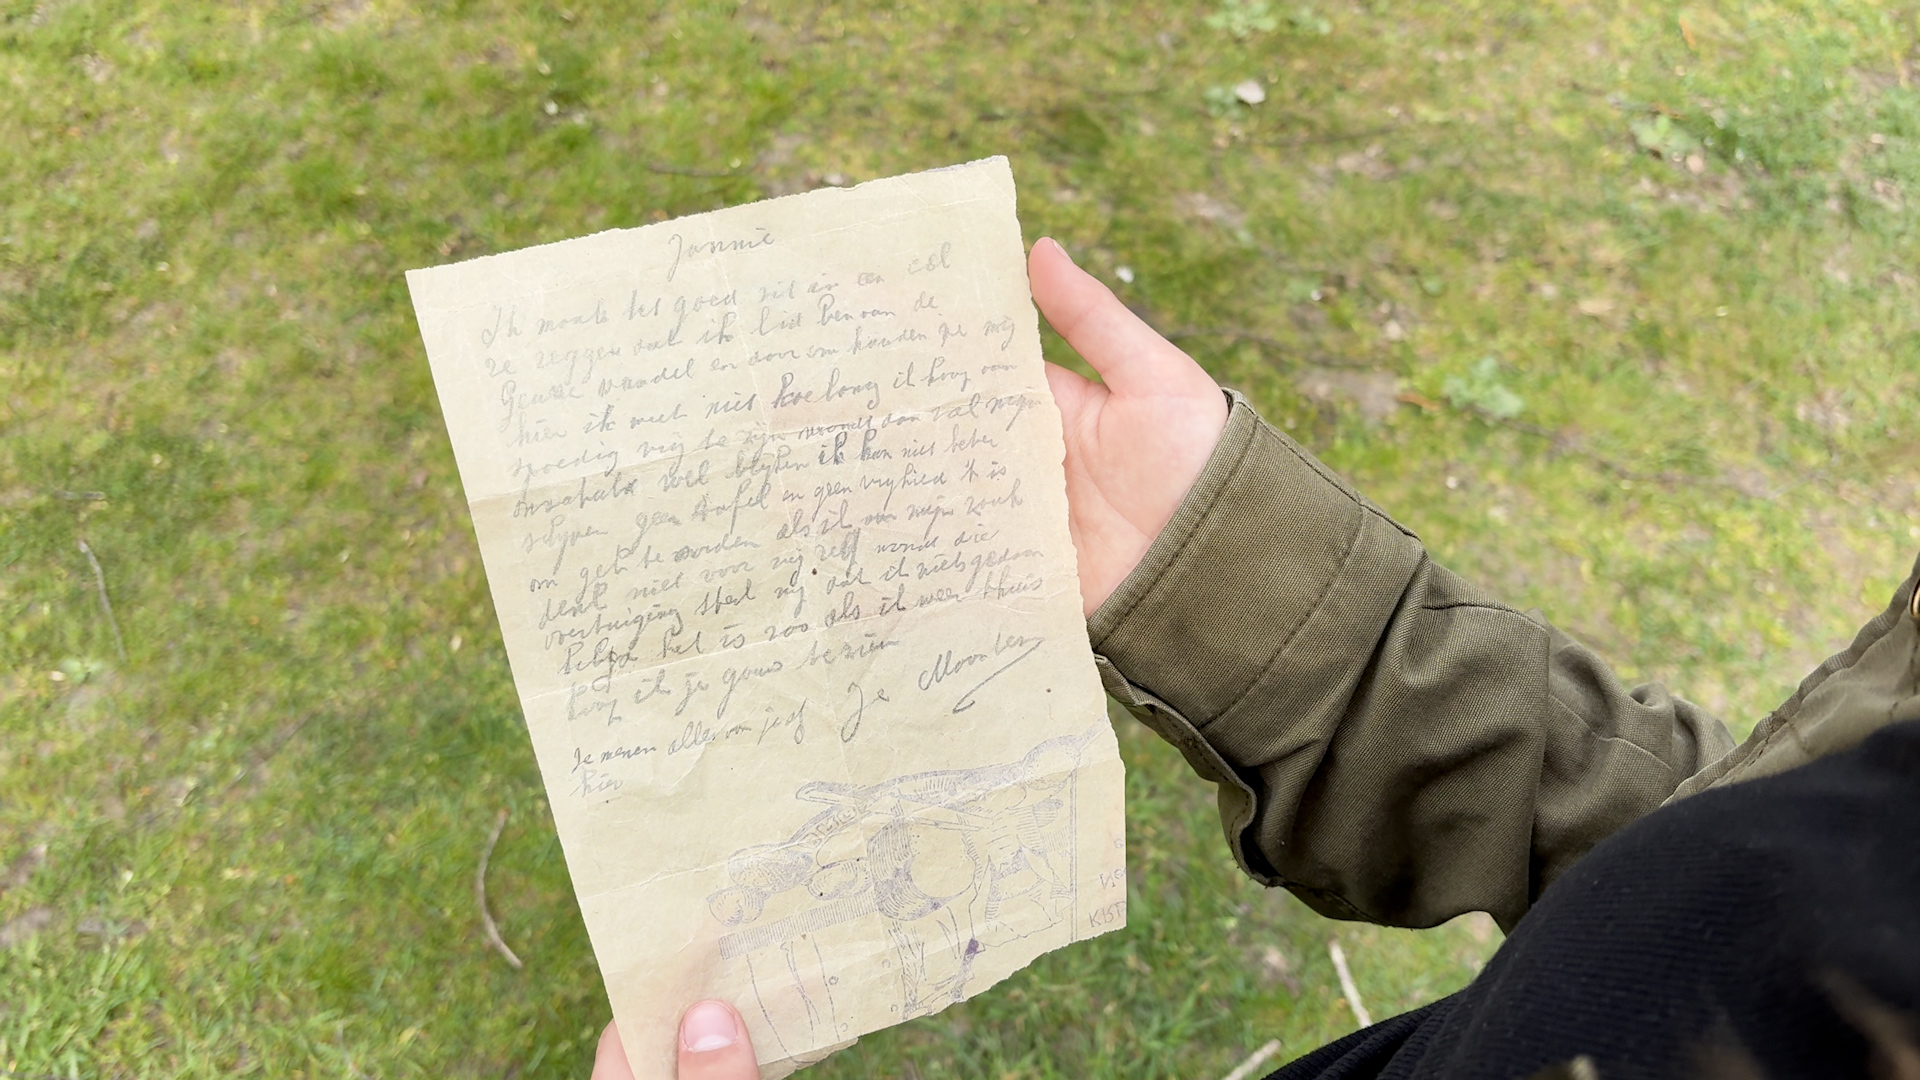 Jannie
Ik maak het goed zit in een cel
ze zeggen dat ik lid ben van de
Geuze vendel en daar om houden ze mij
hier ik weet niet hoe lang ik hoop van
spoedig vrij te zijn want dan zal mijn
onschuld wel blijken ik kan niet beter
schijven geen tafel en geen vryhied t is
om gek te worden als ik aan mijn zouk
denk niet voor mij zelf want die
overtuiging sterk mij dat ik niets gedaan
heb het is zoo als ik weer thuis
hoop ik je gauw te zien
Je Maarten
Je nemen alles van je af
hier